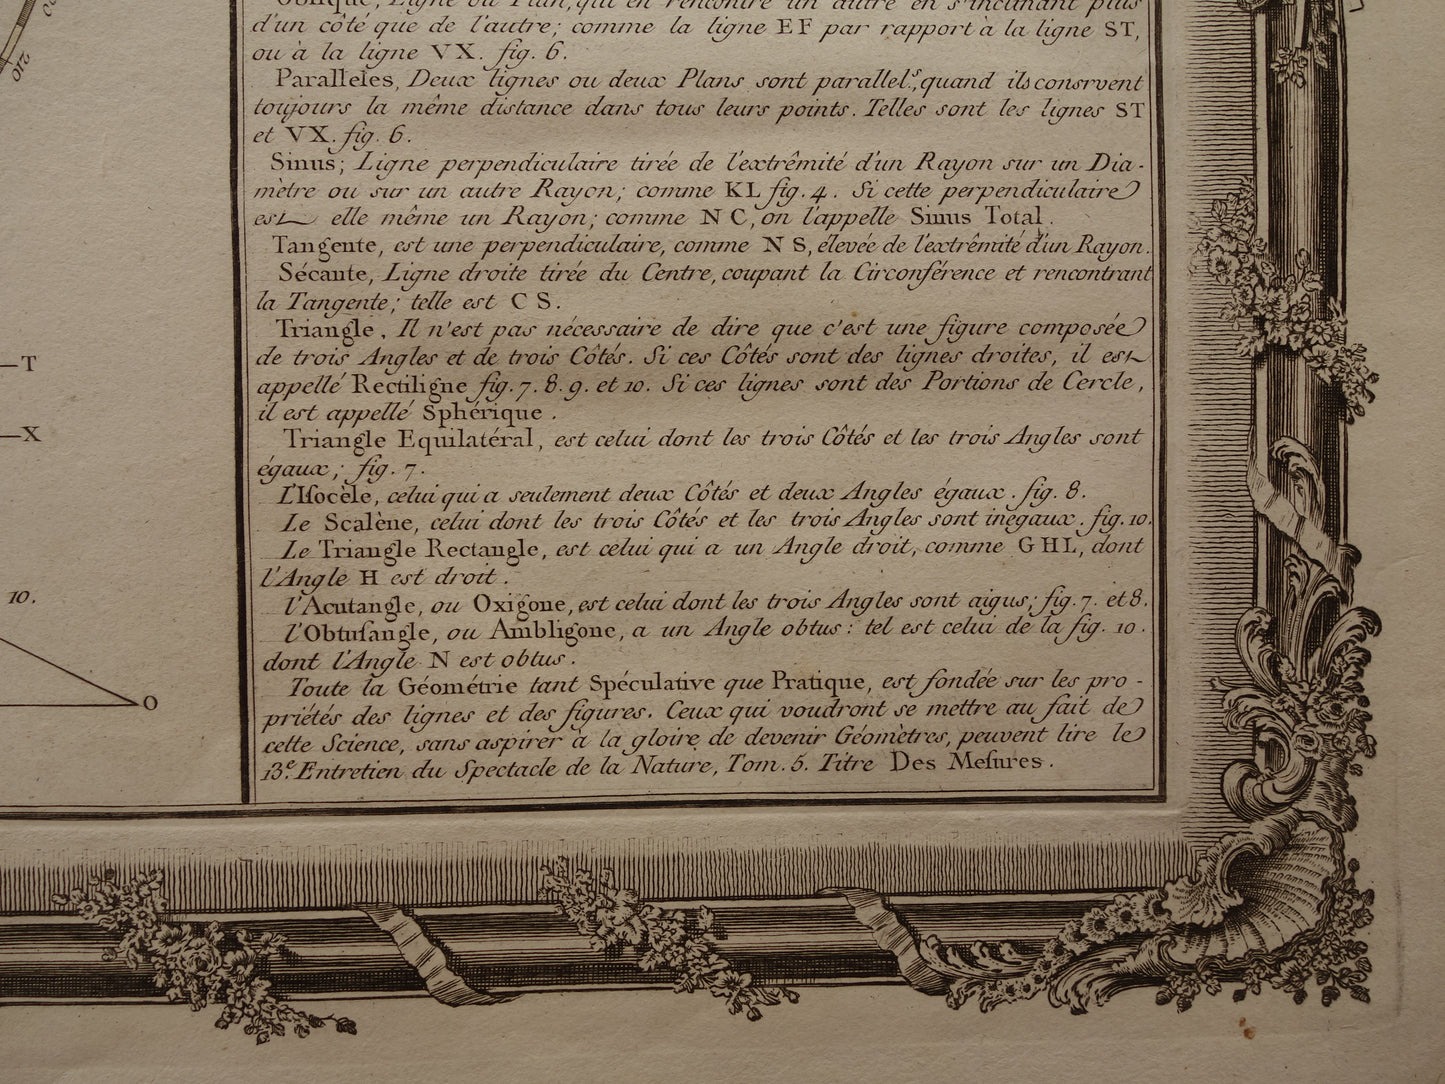 Oblique, Ligne ou Plan, qui en rencontre un autre en s'inclinant plus
d'un côté que de l'autre; comme la ligne EF par rapport à la ligne ST,
ou à la ligne VX. fig. 6.
Paralleles, Deux lignes ou deux Plans sont parallel.s, quand ils conservent
toujours la même distance dans tous leurs points. Telles sont les lignes ST
et VX. fig. 6.
Sinus; Ligne perpendiculaire tirée de l'extrêmité d'un Rayon sur un Dia-
mètre ou sur un autre Rayon; comme KL fig. 4. Si cette perpendiculaire
est elle même un Rayon; comme NC, on l'appelle Sinus Total.
Tangente, est une perpendiculaire, comme NS, élevée de l'extrêmité d'un Rayon.
Sécante, Ligne droite tirée du Centre, coupant la Circonférence et rencontrant
la Tangente; telle est CS.
Triangle, Il n'est pas nécessaire de dire que c'est une figure composée
de trois Angles et de trois Côtés. Si ces Côtés sont des lignes droites, il est
appellé Rectiligne fig. 7. 8. 9. et 10. Si ces lignes sont des Portions de Cercle,
il est appellé Sphérique.
Triangle Equilatéral, est celui dont les trois Côtés et les trois Angles sont
égaux; fig. 7.
L'Isocèle, celui qui a seulement deux Côtés et deux Angles égaux. fig. 8.
Le Scalène, celui dont les trois Côtés et les trois Angles sont inégaux. fig. 10.
Le Triangle Rectangle, est celui qui a un Angle droit, comme GHL, dont
l'Angle H est droit.
l'Acutangle, ou Oxigone, est celui dont les trois Angles sont aigus; fig. 7. et 8.
l'Obtusangle, ou Ambligone, a un Angle obtus: tel est celui de la fig. 10.
dont l'Angle N est obtus.
Toute la Géométrie tant Spéculative que Pratique, est fondée sur les pro-
priétés des lignes et des figures. Ceux qui voudront se mettre au fait de
cette Science, sans aspirer à la gloire de devenir Géomètres, peuvent lire le
13.e Entretien du Spectacle de la Nature, Tom. 5. Titre Des Mesures.
210
T
X
10.
O